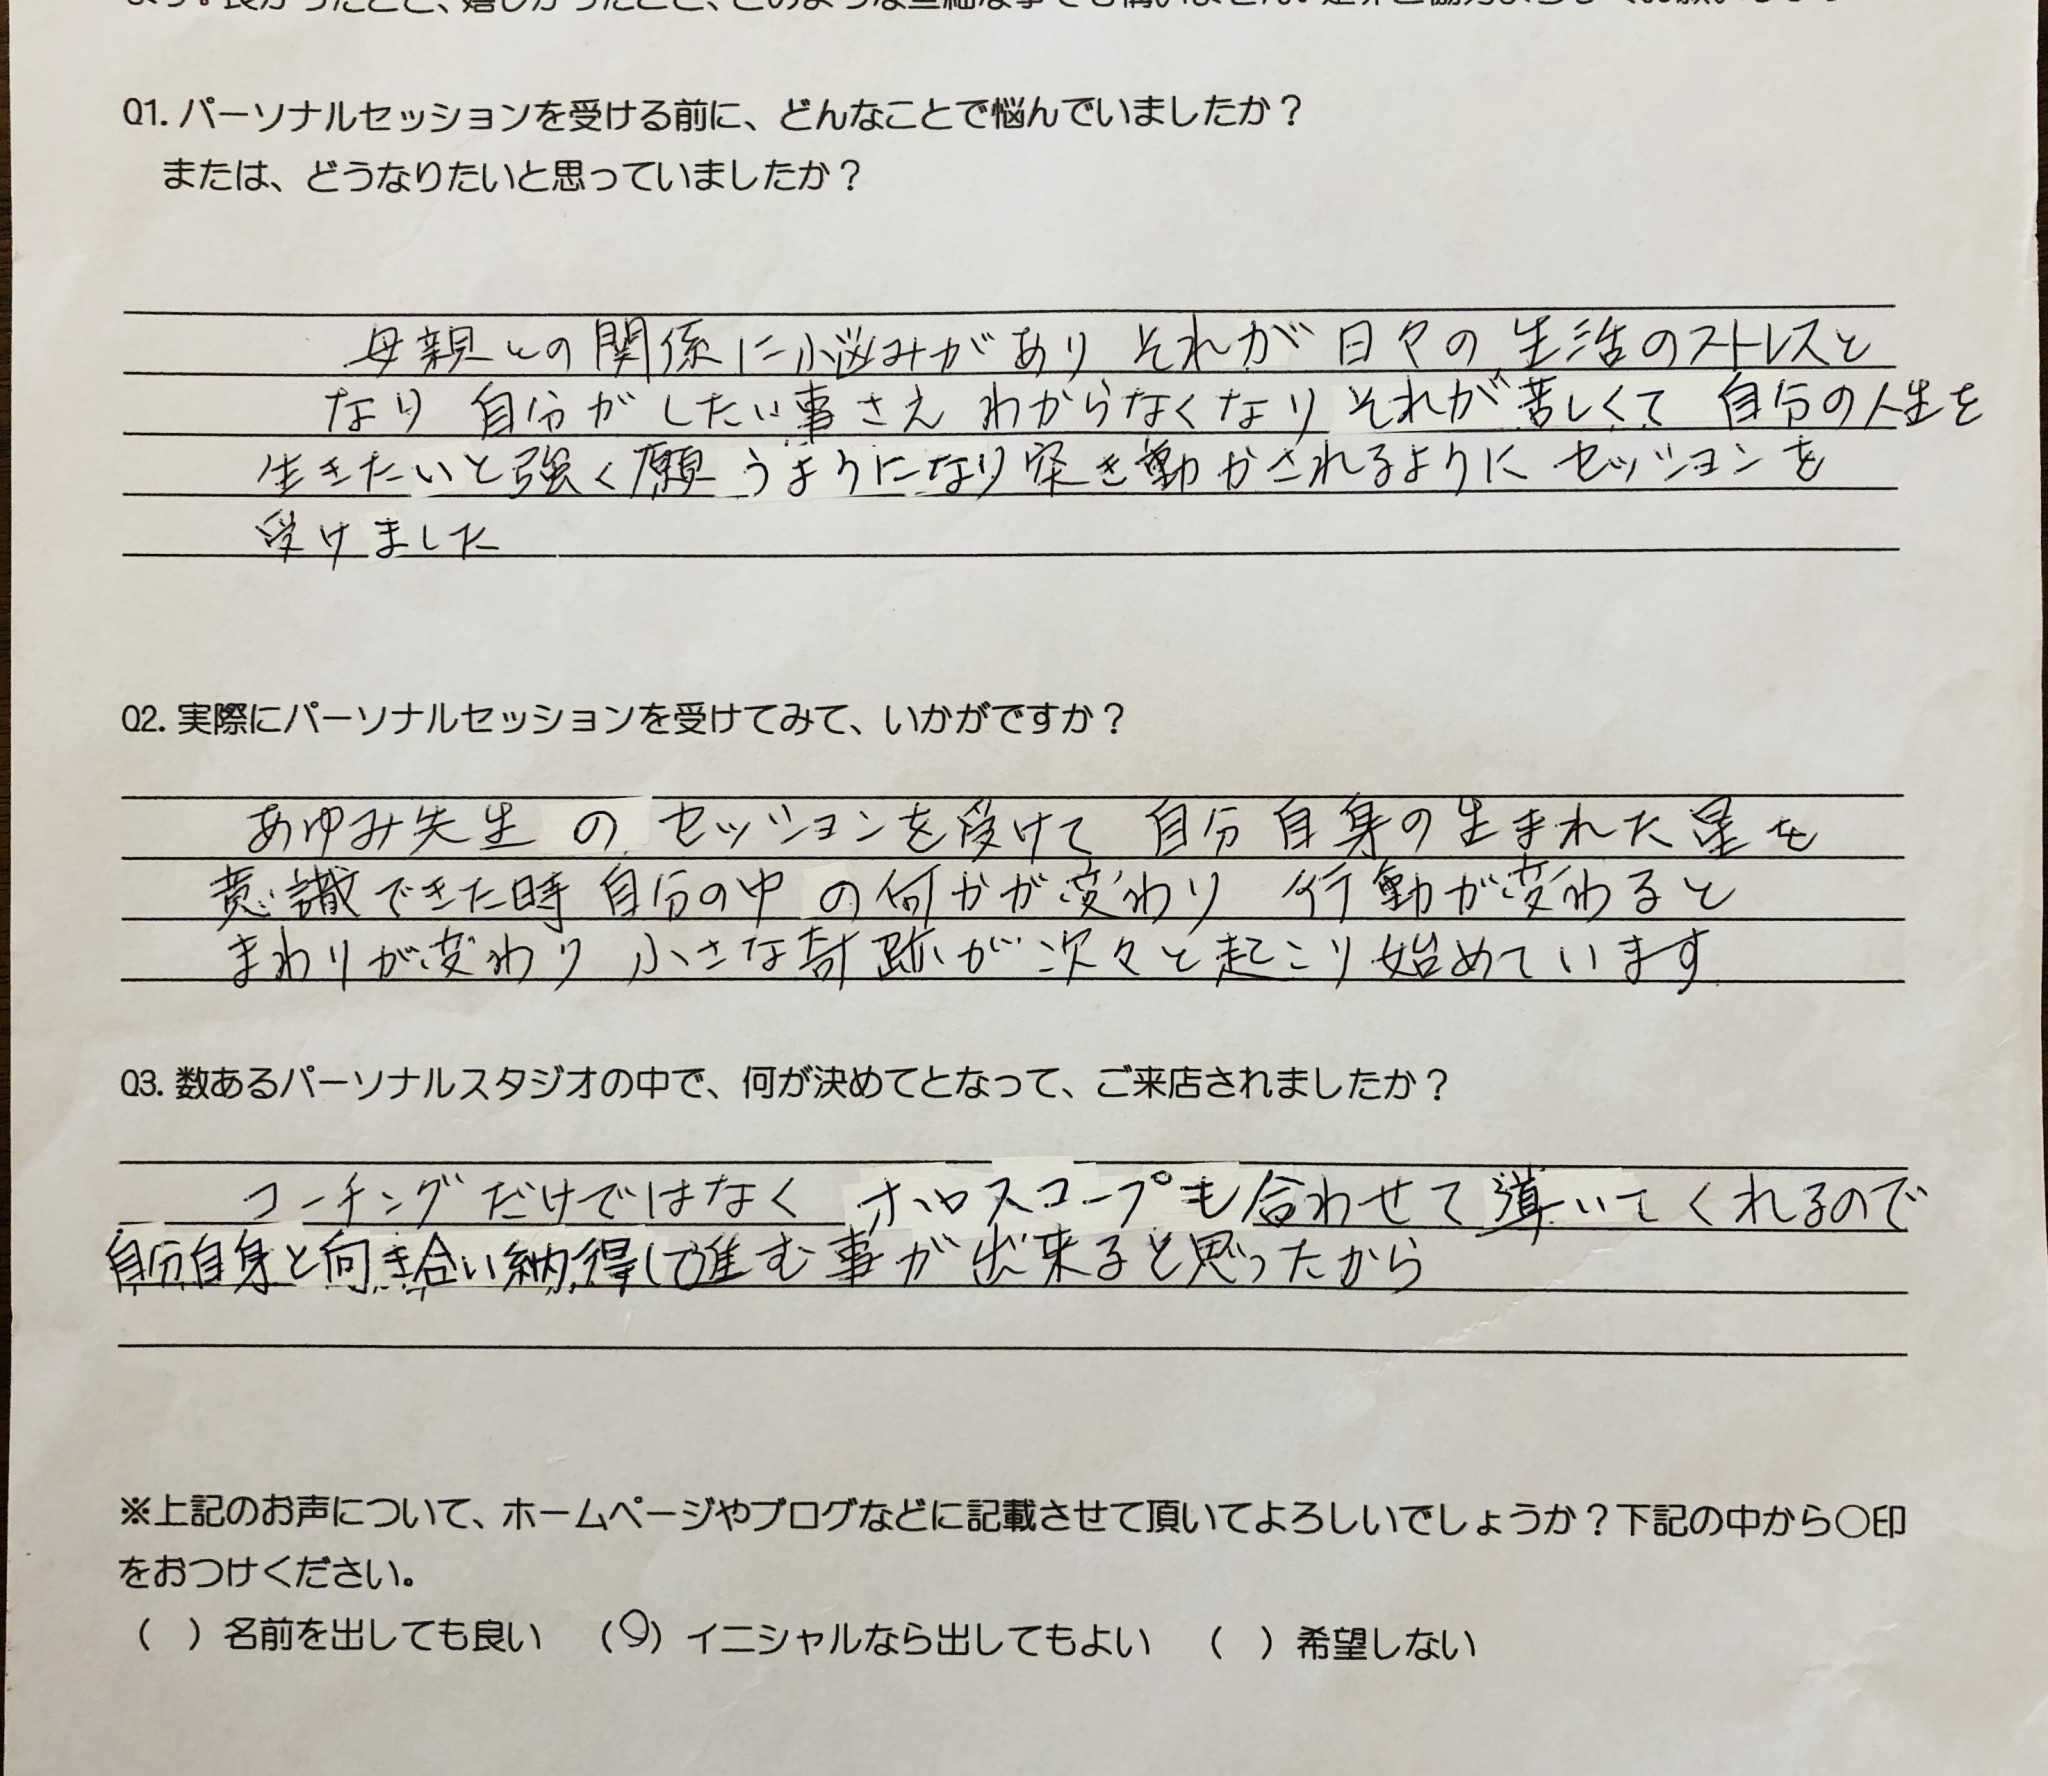 Q1. パーソナルセッションを受ける前に、どんなことで悩んでいましたか？
または、どうなりたいと思っていましたか？
母親との関係に悩みがあり それが 日々の 生活のストレスと
なり 自分が したい事さえ わからなくなり それが苦しくて 自分の人生を
生きたいと強く願うようになり突き動かされるように セッションを
受けました
Q2. 実際にパーソナルセッションを受けてみて、いかがですか？
あゆみ先生 の セッションを受けて 自分自身の生まれた星を
意識できた時 自分の中 の何かが変わり 行動が変わると
まわりが変わり 小さな奇跡が次々と起こり始めています
Q3. 数あるパーソナルスタジオの中で、何が決めてとなって、ご来店されましたか？
コーチングだけではなく ホロスコープも合わせて導いてくれるので
自分自身と向き合い納得して進む事が出来ると思ったから
※上記のお声について、ホームページやブログなどに記載させて頂いてよろしいでしょうか？下記の中から〇印
をおつけください。
（ ）名前を出しても良い （○）イニシャルなら出してもよい （ ）希望しない